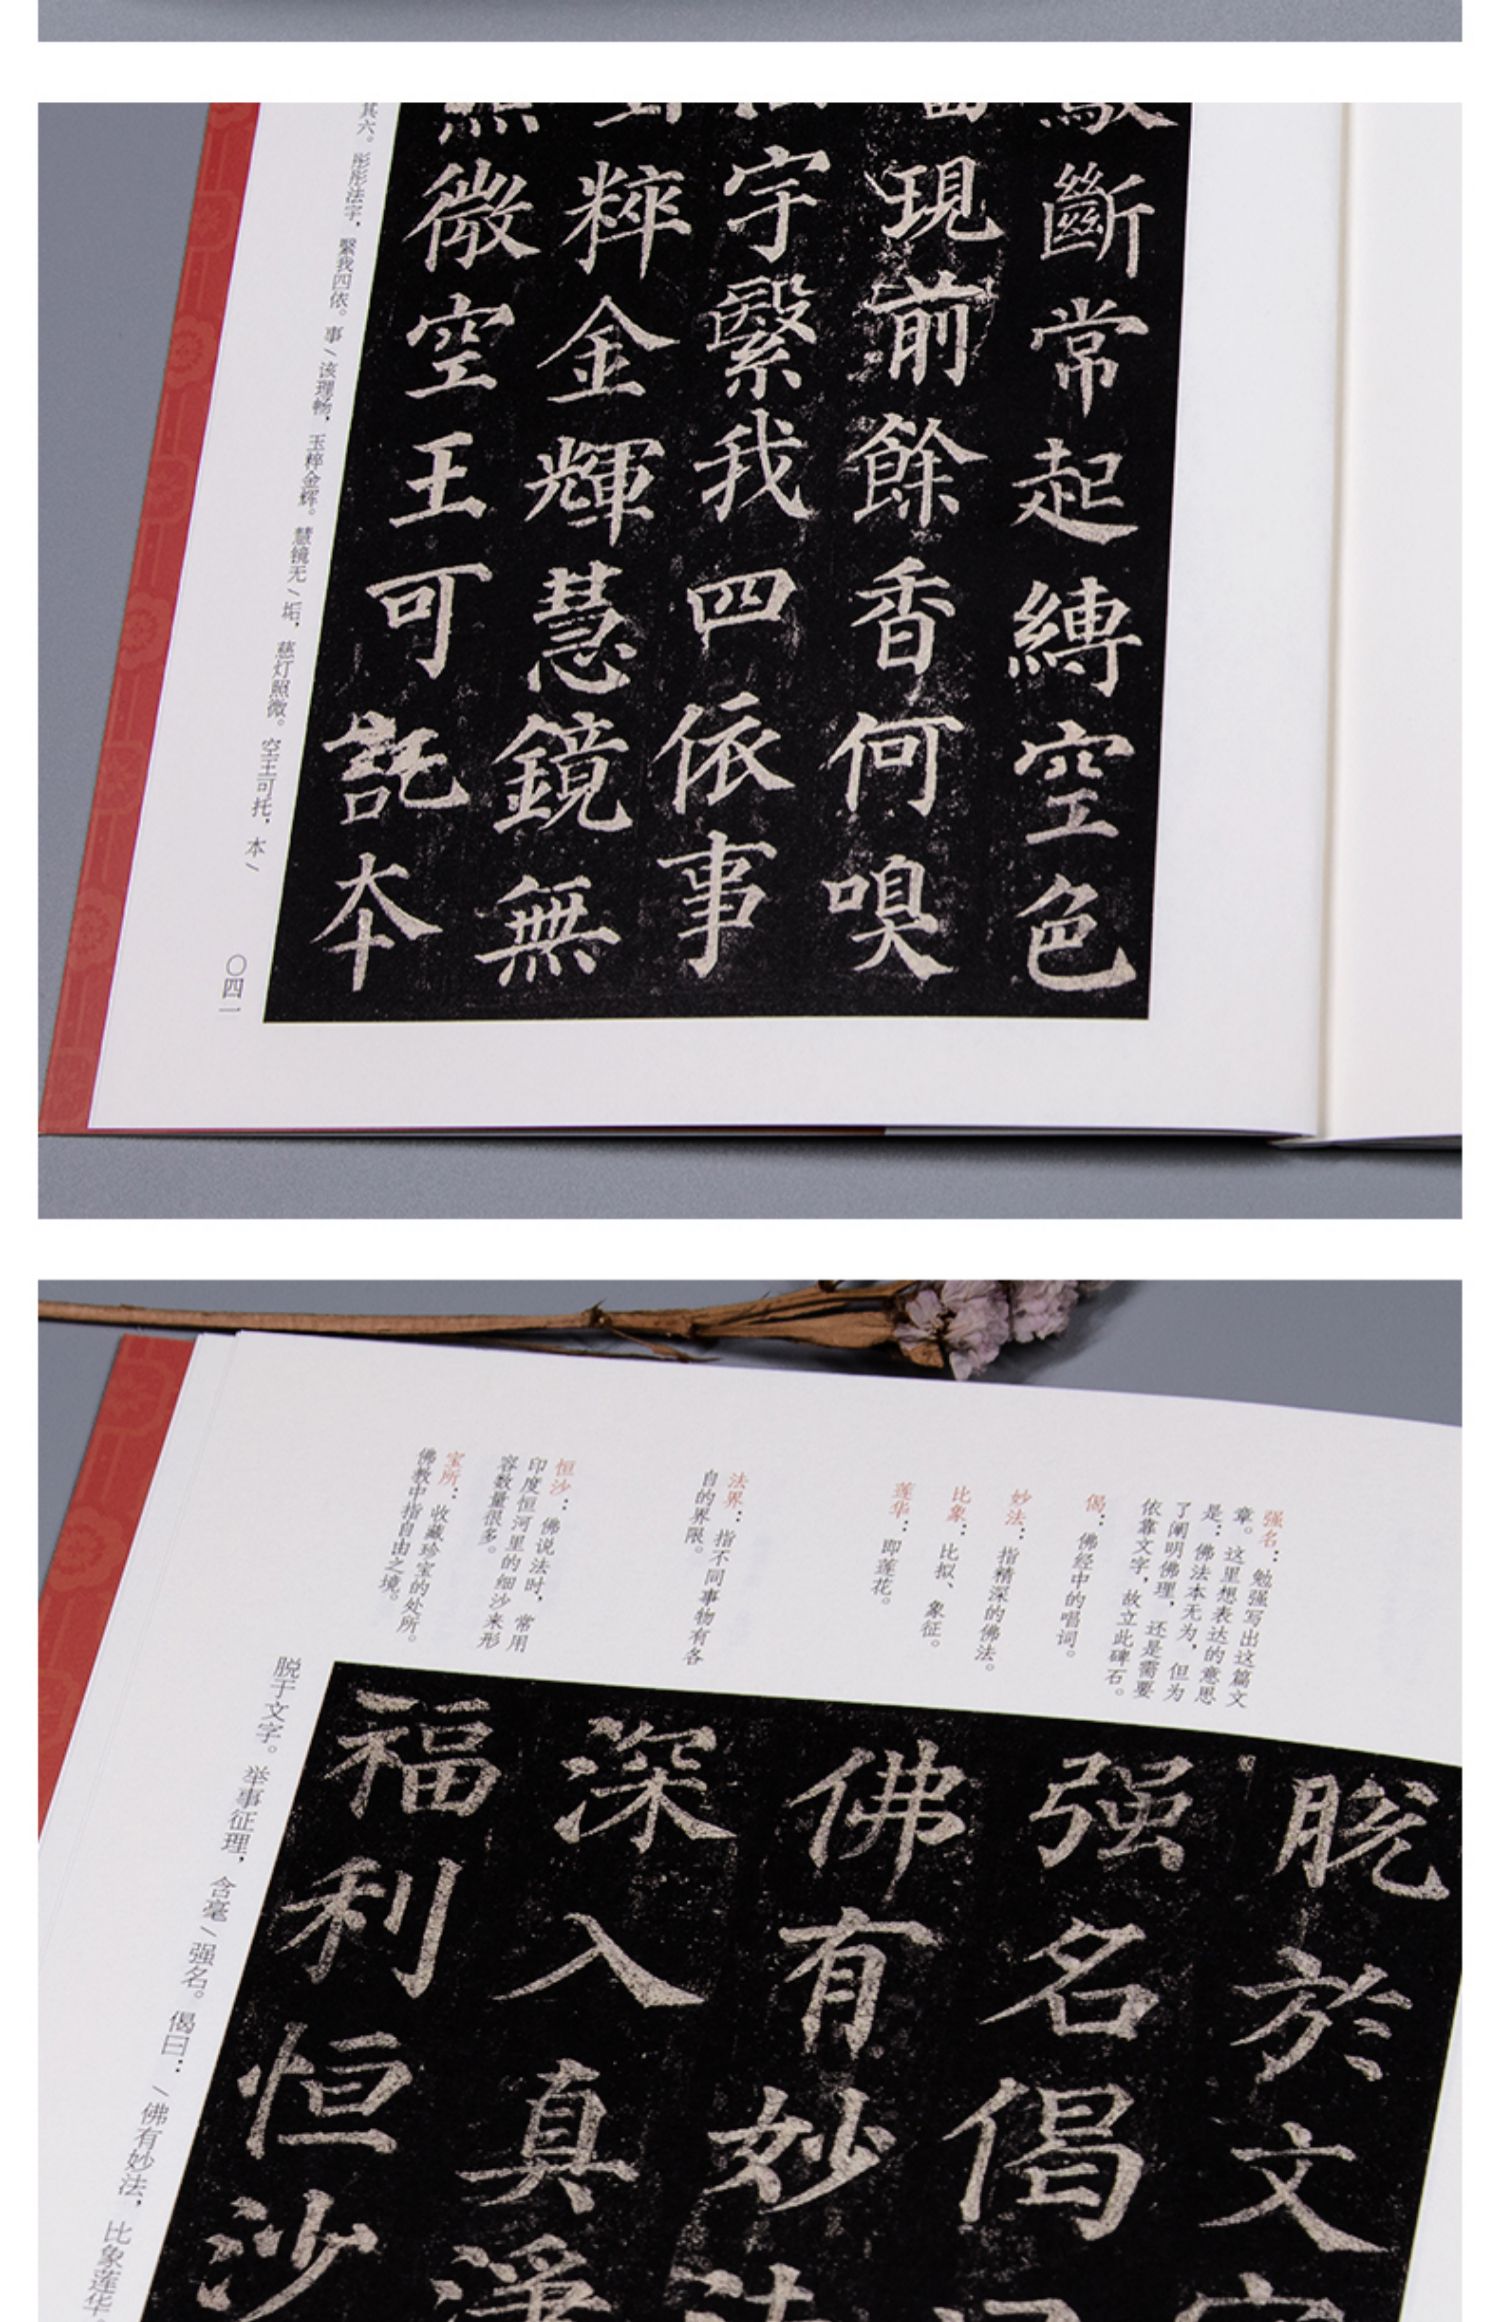 斷常起縛空色
現前餘香何嗅
宇繄我四依事
粹金輝慧鏡無
微空王可託本
其六。彤彤法宇，繄我四依。事/该理畅，玉粹金辉。慧镜无/垢，慈灯照微。空王可托，本/
〇四一
强名：勉强写出这篇文
章。这里想表达的意思
是：佛法本无为，但为
了阐明佛理，还是需要
依靠文字，故立此碑石。
偈：佛经中的唱词。
妙法：指精深的佛法。
比象：比拟、象征。
莲华：即莲花。
法界：指不同事物有各
自的界限。
恒沙：佛说法时，常用
印度恒河里的细沙来形
容数量很多。
宝所：收藏珍宝的处所。
佛教中指自由之境。
脱於文字
强名偈
佛有妙法
深入真
福利恒沙
脱于文字。举事征理，含毫/强名。偈曰：/佛有妙法，比象莲华。